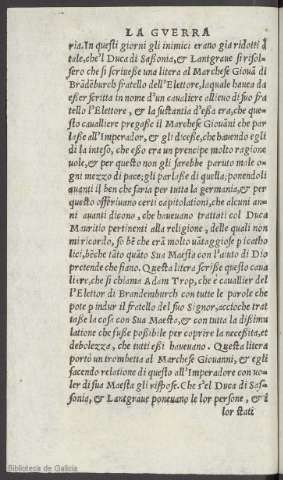 LA GVERRA
ria. In questi giorni gli inimici erano gia ridotti à
tale, che'l Duca di Sassonia, & Lantgraue si risol-
sero che si scriuesse una litera al Marchese Giouā di
Brādēburch fratello dell'Elettore, laquale haueа da
esser scritta in nome d'un caualiere allieuo di suo fra
tello l'Elettore, & la sustantia d'essa era, che que-
sto caualliere pregasse il Marchese Giouāni che par
lasse all'Imperador, & gli dicesse, che hauendo egli
di la inteso, che esso era un prencipe molto ragione
uole, & per questo non gli sarebbe paruto male o-
gni mezzo di pace, gli parlasse di quella; ponendoli
auanti il ben che saria per tutta la germania, & per
questo offeriuano certi capitolationi, che alcuni an-
ni auanti dicono, che haueuano trattati col Duca
Mauritio pertinenti alla religione, delle quali non
mi ricordo, so bē che erā molto uātaggiose p i catho
lici, bēche tāto quāto Sua Maestà con l'aiuto di Dio
pretende che siano. Questa litera scrisse questo caua
liere, che si chiama Adam Trop, che è cauallier del
l'Elettor di Brandenburch con tutte le parole che
pote p indur il fratello del suo Signor, accioche trat
tasse la cosa con Sua Maestà, & con tutta la dissimu
latione che fusse possibile per coprire la necessità, et
debolezza, che tutti essi haueuano. Questa litera
portò un trombetta al Marchese Giouanni, & egli
facendo relatione di questo all'Imperadore con uo-
ler di sua Maestà gli rispose. Che s'el Duca di Sas-
sonia, & Lantgraue poneuano le lor persone, & i
lor stati
Biblioteca de Galicia